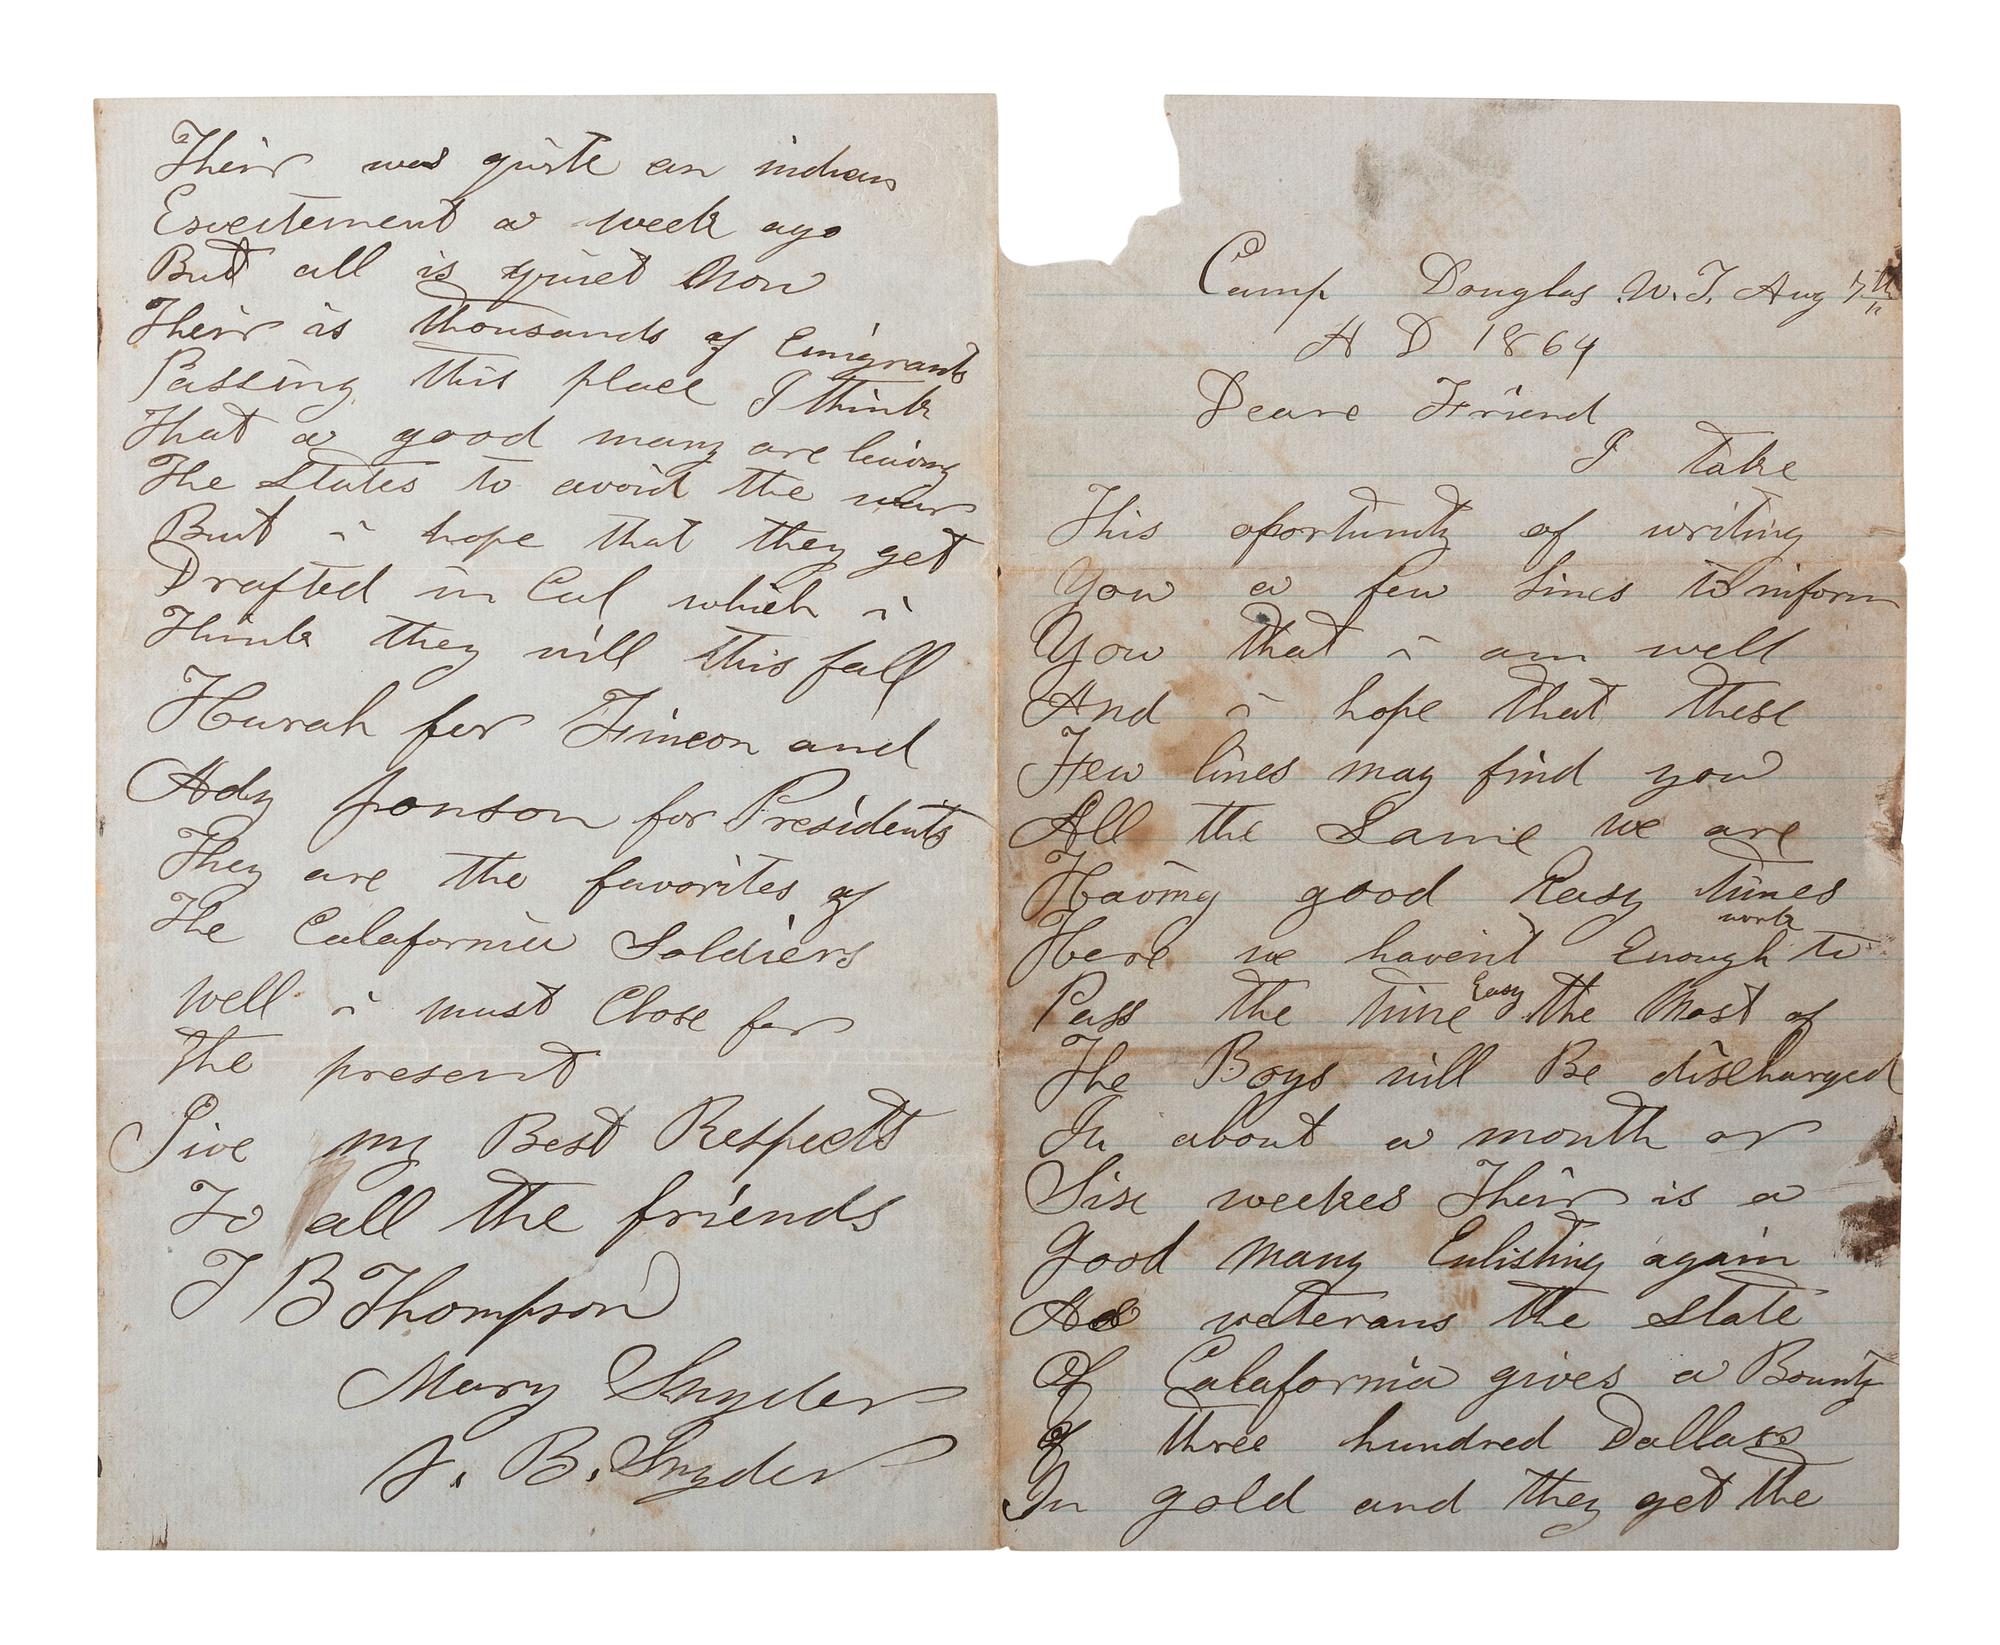 Camp Douglas U.T. Aug 7th
A D 1864
Deare Friend
I take
This oportunity of writing
You a few lines to inform
You that i am well
And i hope that these
Few lines may find you
All the Same we are
Having good Easy times
Here we havent Enough work to
Pass the time Easy the Most of
The Boys will Be discharged
In about a month or
Six weekes Their is a
Good Many Enlisting again
As veterans the State
Of Calafornia gives a Bounty
Of three hundred Dollars
In gold and they get the
Their was quite an indian
Excitement a week ago
But all is quiet Now
Their is thousands of Emigrants
Passing this place I think
That a good many are leiving
The States to avoid the war
But i hope that they get
Drafted in Cal which i
Think they will this fall
Hurah for Lincon and
Ady Jonson for Presidents
They are the favorites of
The Calafornia Soldiers
Well i must Close for
The present
Give my Best Respects
To all the friends
T B Thompson
Mary Snyder
J. B. Snyder